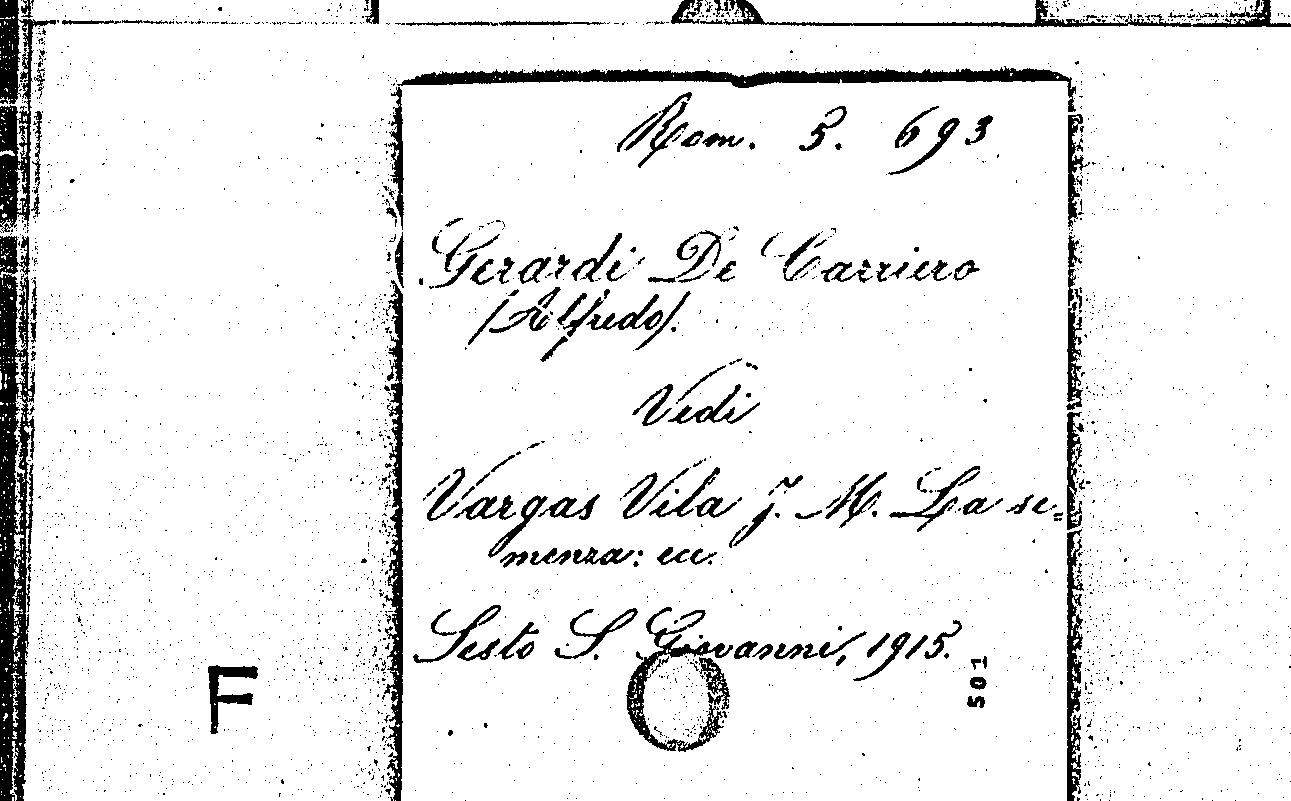 Rom. 5. 693
Gerardi De Carriero
(Alfredo).
Vedi
Vargas Vila J. M. La se=
menza: ecc.
Sesto S. Giovanni, 1915.
501
F